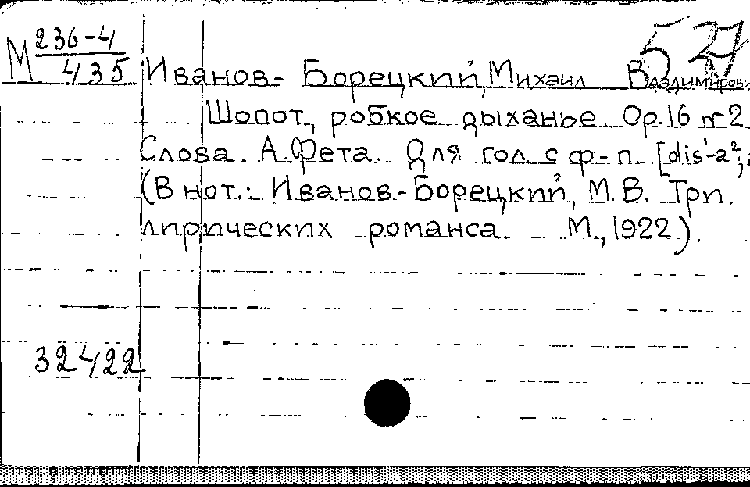 М 236-4
435
527
Иванов-Борецкий, Михаил Владимиров.
Шопот, робкое дыханье. Ор. 16 № 2
Слова А. Фета. Для гол. с ф-п. [dis'-a²;
(В нот.: Иванов-Борецкий, М. В. Три
лирических романса. М., 1922).
32422